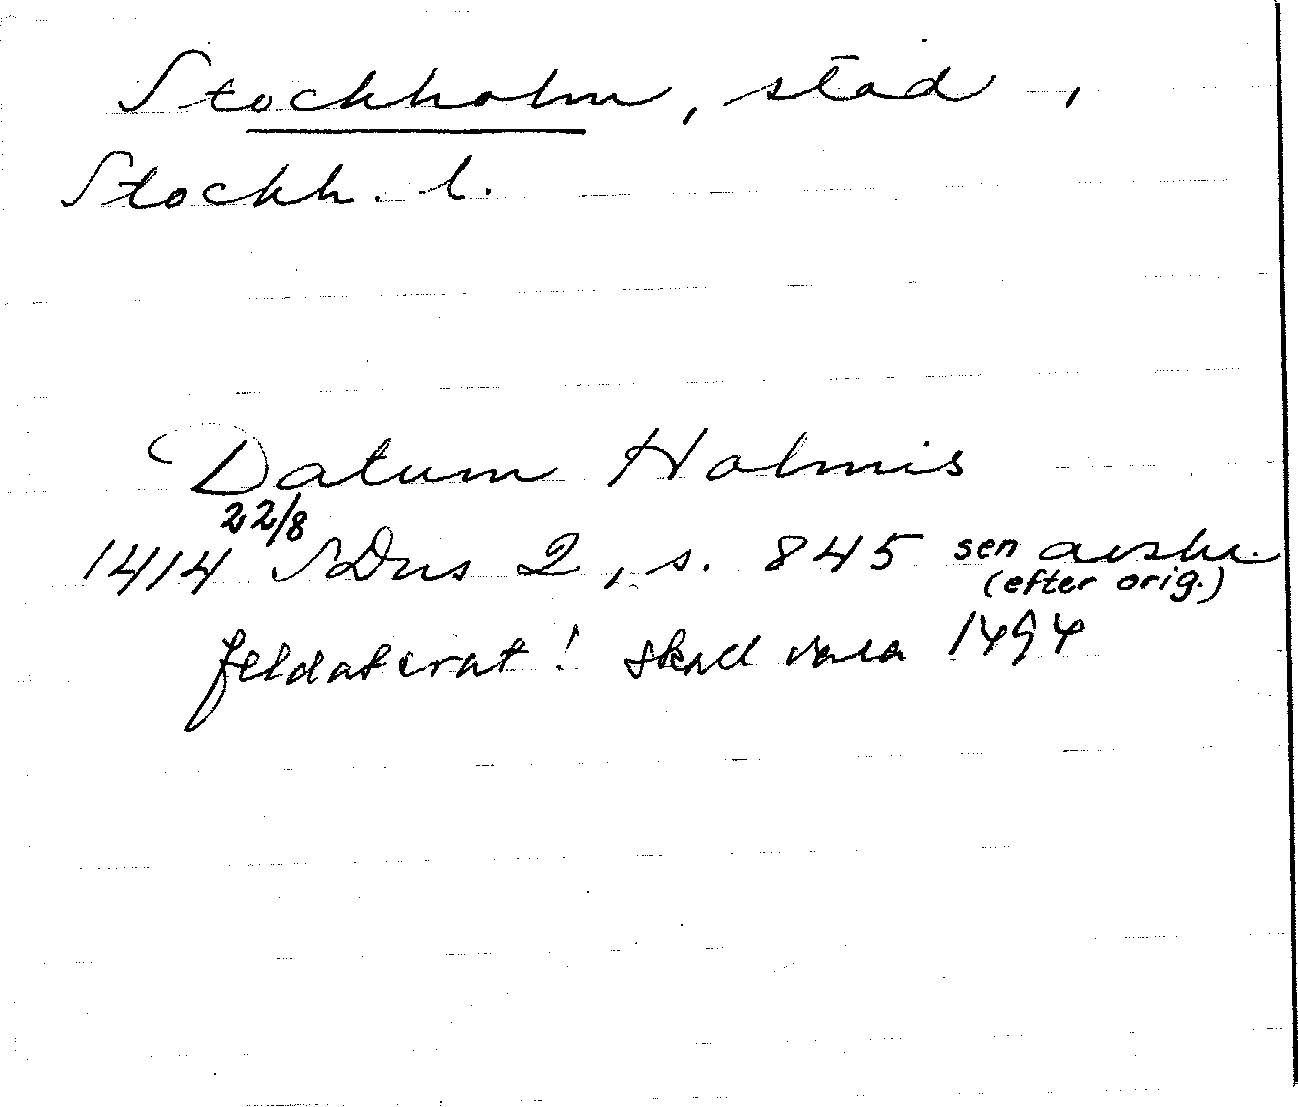 Stockholm, stad,
Stockh. l.
Datum Holmis
22/8
1414 SDns 2, s. 845 sen avskr.
(efter orig.)
feldaterat! skall vara 1494